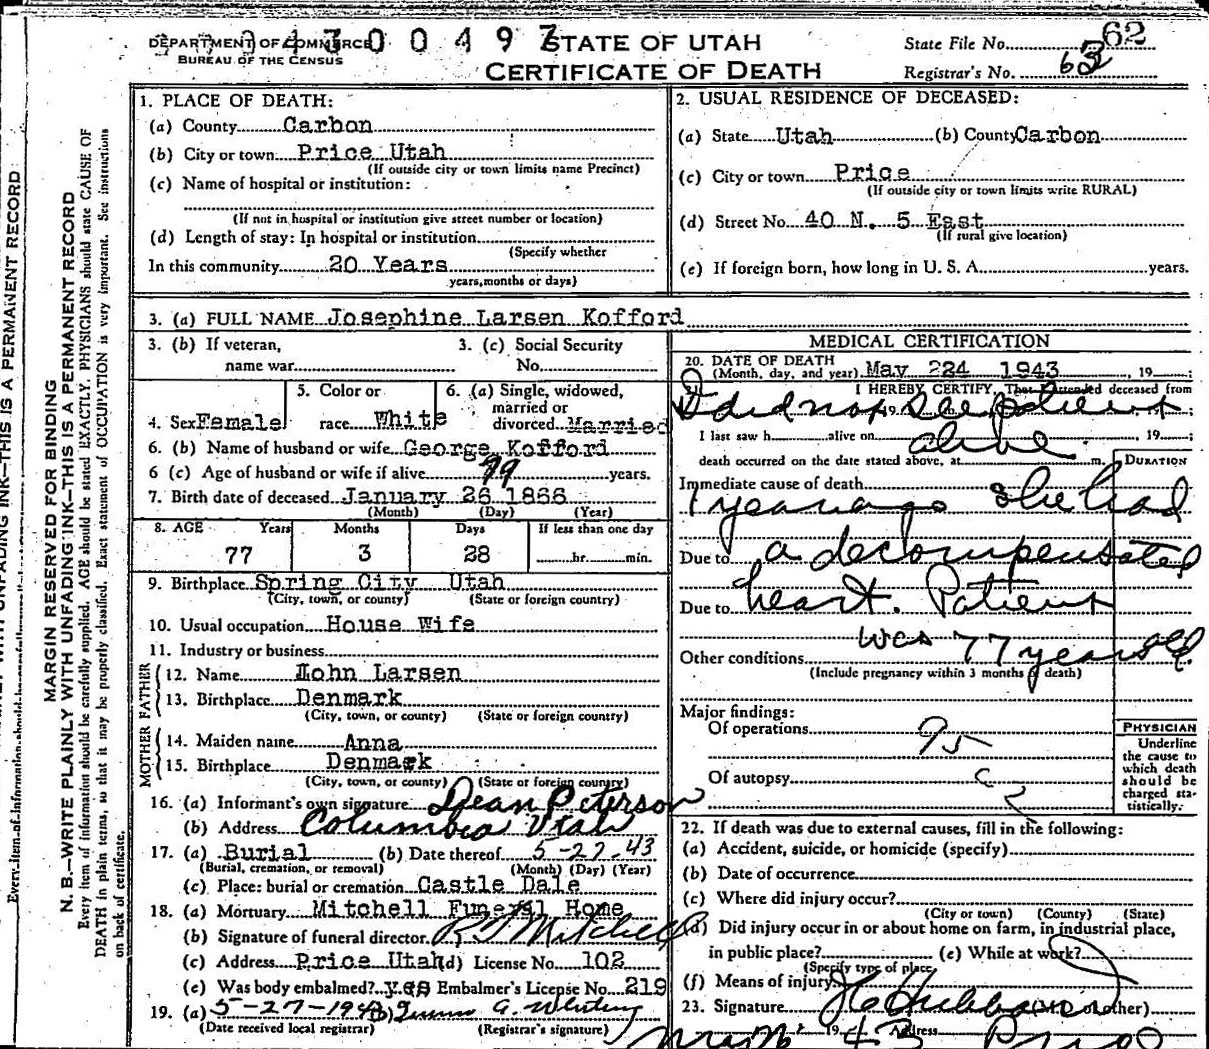 DEPARTMENT OF COMMERCE
BUREAU OF THE CENSUS
0 4 3 0 0 4 9 7
STATE OF UTAH
CERTIFICATE OF DEATH
State File No. 62
Registrar's No. 63
1. PLACE OF DEATH:
(a) County Carbon
(b) City or town Price Utah
(If outside city or town limits name Precinct)
(c) Name of hospital or institution:
(If not in hospital or institution give street number or location)
(d) Length of stay: In hospital or institution
(Specify whether
In this community 20 Years
years, months or days)
2. USUAL RESIDENCE OF DECEASED:
(a) State Utah (b) County Carbon
(c) City or town Price
(If outside city or town limits write RURAL)
(d) Street No. 40 N. 5 East
(If rural give location)
(e) If foreign born, how long in U. S. A. years.
3. (a) FULL NAME Josephine Larsen Kofford
3. (b) If veteran, name war
3. (c) Social Security No.
4. Sex Female
5. Color or race White
6. (a) Single, widowed, married or divorced Married
6. (b) Name of husband or wife George Kofford
6 (c) Age of husband or wife if alive years.
7. Birth date of deceased January 26 1866
(Month) (Day) (Year)
8. AGE Years Months Days If less than one day
77 3 28 hr. min.
9. Birthplace Spring City Utah
(City, town, or county) (State or foreign country)
10. Usual occupation House Wife
11. Industry or business
FATHER
12. Name John Larsen
13. Birthplace Denmark
(City, town, or county) (State or foreign country)
MOTHER
14. Maiden name Anna
15. Birthplace Denmark
(City, town, or county) (State or foreign country)
16. (a) Informant's own signature Dean Peterson
(b) Address Columbia Utah
17. (a) Burial (b) Date thereof 5-27-43
(Burial, cremation, or removal) (Month) (Day) (Year)
(c) Place: burial or cremation Castle Dale
18. (a) Mortuary Mitchell Funeral Home
(b) Signature of funeral director Mitchell
(c) Address Price Utah (d) License No. 102
(e) Was body embalmed? yes Embalmer's License No. 219
19. (a) 5-27-1943
(Date received local registrar) (Registrar's signature)
MEDICAL CERTIFICATION
20. DATE OF DEATH
(Month, day, and year) May 224 1943, 19 ;
21. I HEREBY CERTIFY, That I attended deceased from
I did not see patient
I last saw h alive on alive, 19 ;
death occurred on the date stated above, at m. DURATION
Immediate cause of death
1 year ago she had
Due to a decompensated
Due to heart. Patient
was 77 years old.
Other conditions
(Include pregnancy within 3 months of death)
Major findings:
Of operations 95
Of autopsy c
PHYSICIAN
Underline
the cause to
which death
should be
charged sta-
tistically.
22. If death was due to external causes, fill in the following:
(a) Accident, suicide, or homicide (specify)
(b) Date of occurrence
(c) Where did injury occur?
(City or town) (County) (State)
(d) Did injury occur in or about home on farm, in industrial place,
in public place? (e) While at work?
(Specify type of place)
(f) Means of injury
23. Signature
19 43 Address Price
MARGIN RESERVED FOR BINDING
N. B.—WRITE PLAINLY WITH UNFADING INK—THIS IS A PERMANENT RECORD
Every item of information should be carefully supplied. AGE should be stated EXACTLY. PHYSICIANS should state CAUSE OF
DEATH in plain terms, so that it may be properly classified. Exact statement of OCCUPATION is very important. See instructions
on back of certificate.
WITH UNFADING INK—THIS IS A PERMANENT RECORD
Every item of information should be